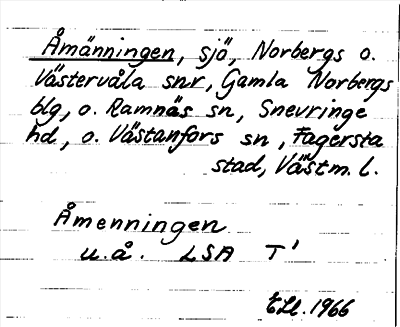 Åmänningen, sjö, Norbergs o.
Västervåla snr, Gamla Norbergs
blg, o. Ramnäs sn, Snevringe
hd, o. Västanfors sn, Fagersta
stad, Västm. l.
Åmenningen
u.å. LSA T'
ELl. 1966